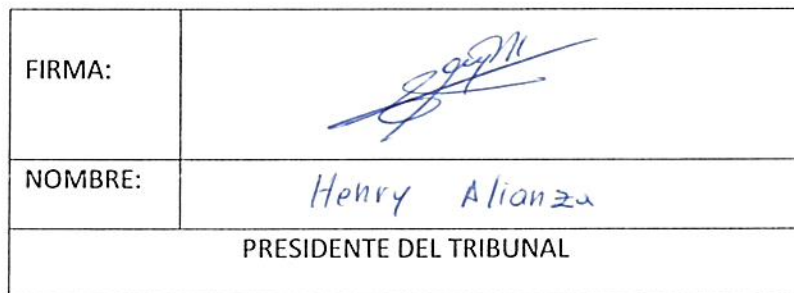 FIRMA:
NOMBRE: Henry Alianza
PRESIDENTE DEL TRIBUNAL